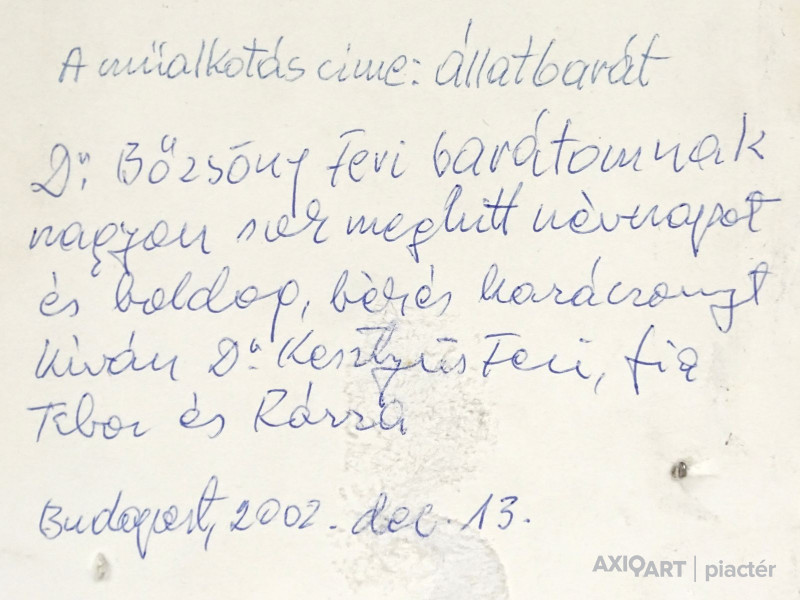 A műalkotás címe: állatbarát
Dr. Bőzsöny Feri barátomnak
nagyon sok meghitt névnapot
és boldog, békés karácsonyt
kíván Dr. Kesztyűs Feri, fia
Tibor és Rózsa
Budapest, 2002. dec. 13.
AXIOART | piactér